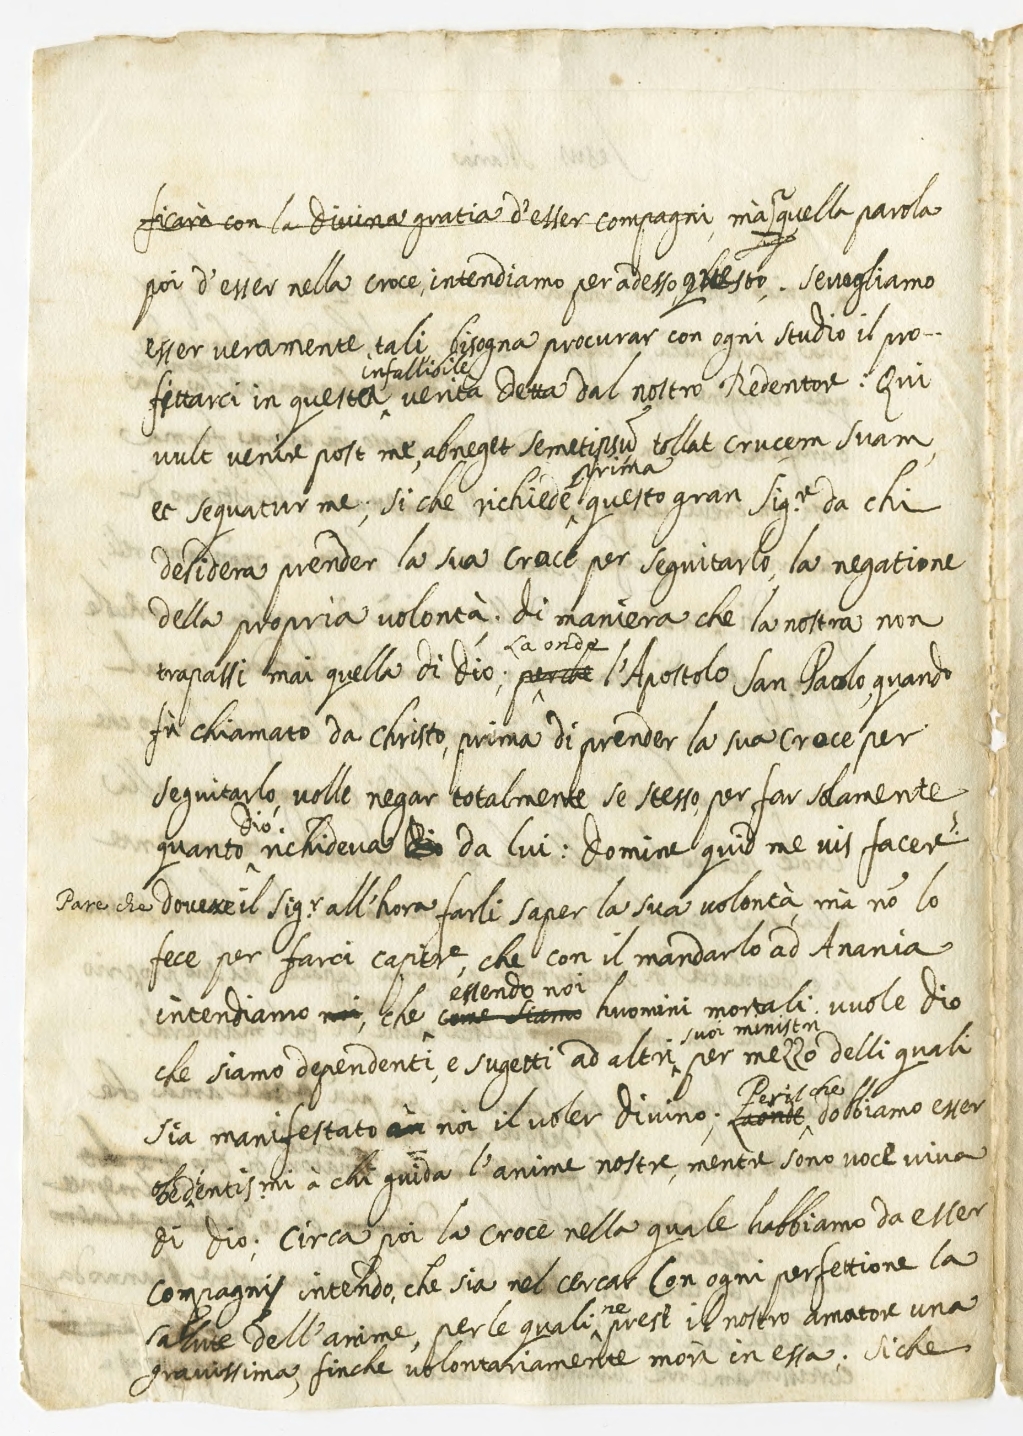 ficarà con la divina gratia d'esser compagni, mà quella parola
poi d'esser nella croce, intendiamo per adesso questo. Se vogliamo
esser veramente tali, bisogna procurar con ogni studio il pro-
infallibile
fittarci in questa verita detta dal nostro Redentore: Qui
vult venire post me, abneget semetipsū tollat crucem suam,
prima
et sequatur me; si che richiede questo gran Sig.re da chi
desidera prender la sua croce per seguitarlo, la negatione
della propria volontà. di maniera che la nostra non
La onde
trapassi mai quella di Dio; perche l'Apostolo San Paolo, quando
fù chiamato da Christo, prima di prender la sua croce per
seguitarlo, volle negar totalmente se stesso, per far solamente
Dio
quanto richideva Dio da lui: Domine quid me vis facere?
Pare che dovere il Sig.r all'hora farli saper la sua volontà, mà nō lo
fece per farci capire, che con il mandarlo ad Anania
essendo noi
intendiamo noi, che come siamo huomini mortali vuole Dio
suoi ministri
che siamo dependenti, e sugetti ad altri per mezzo delli quali
Perilche
sia manifestato à noi il voler divino; Laonde dobbiamo esser
obedientis.mi à chi guida l'anime nostre, mentre sono voce viva
di Dio; Circa poi la croce nella quale habbiamo da esser
compagni intendo, che sia nel cercar con ogni perfettione la
ne
salute dell'anime, per le quali prese il nostro amatore una
gravissima, finche volontariamente morì in essa. Siche